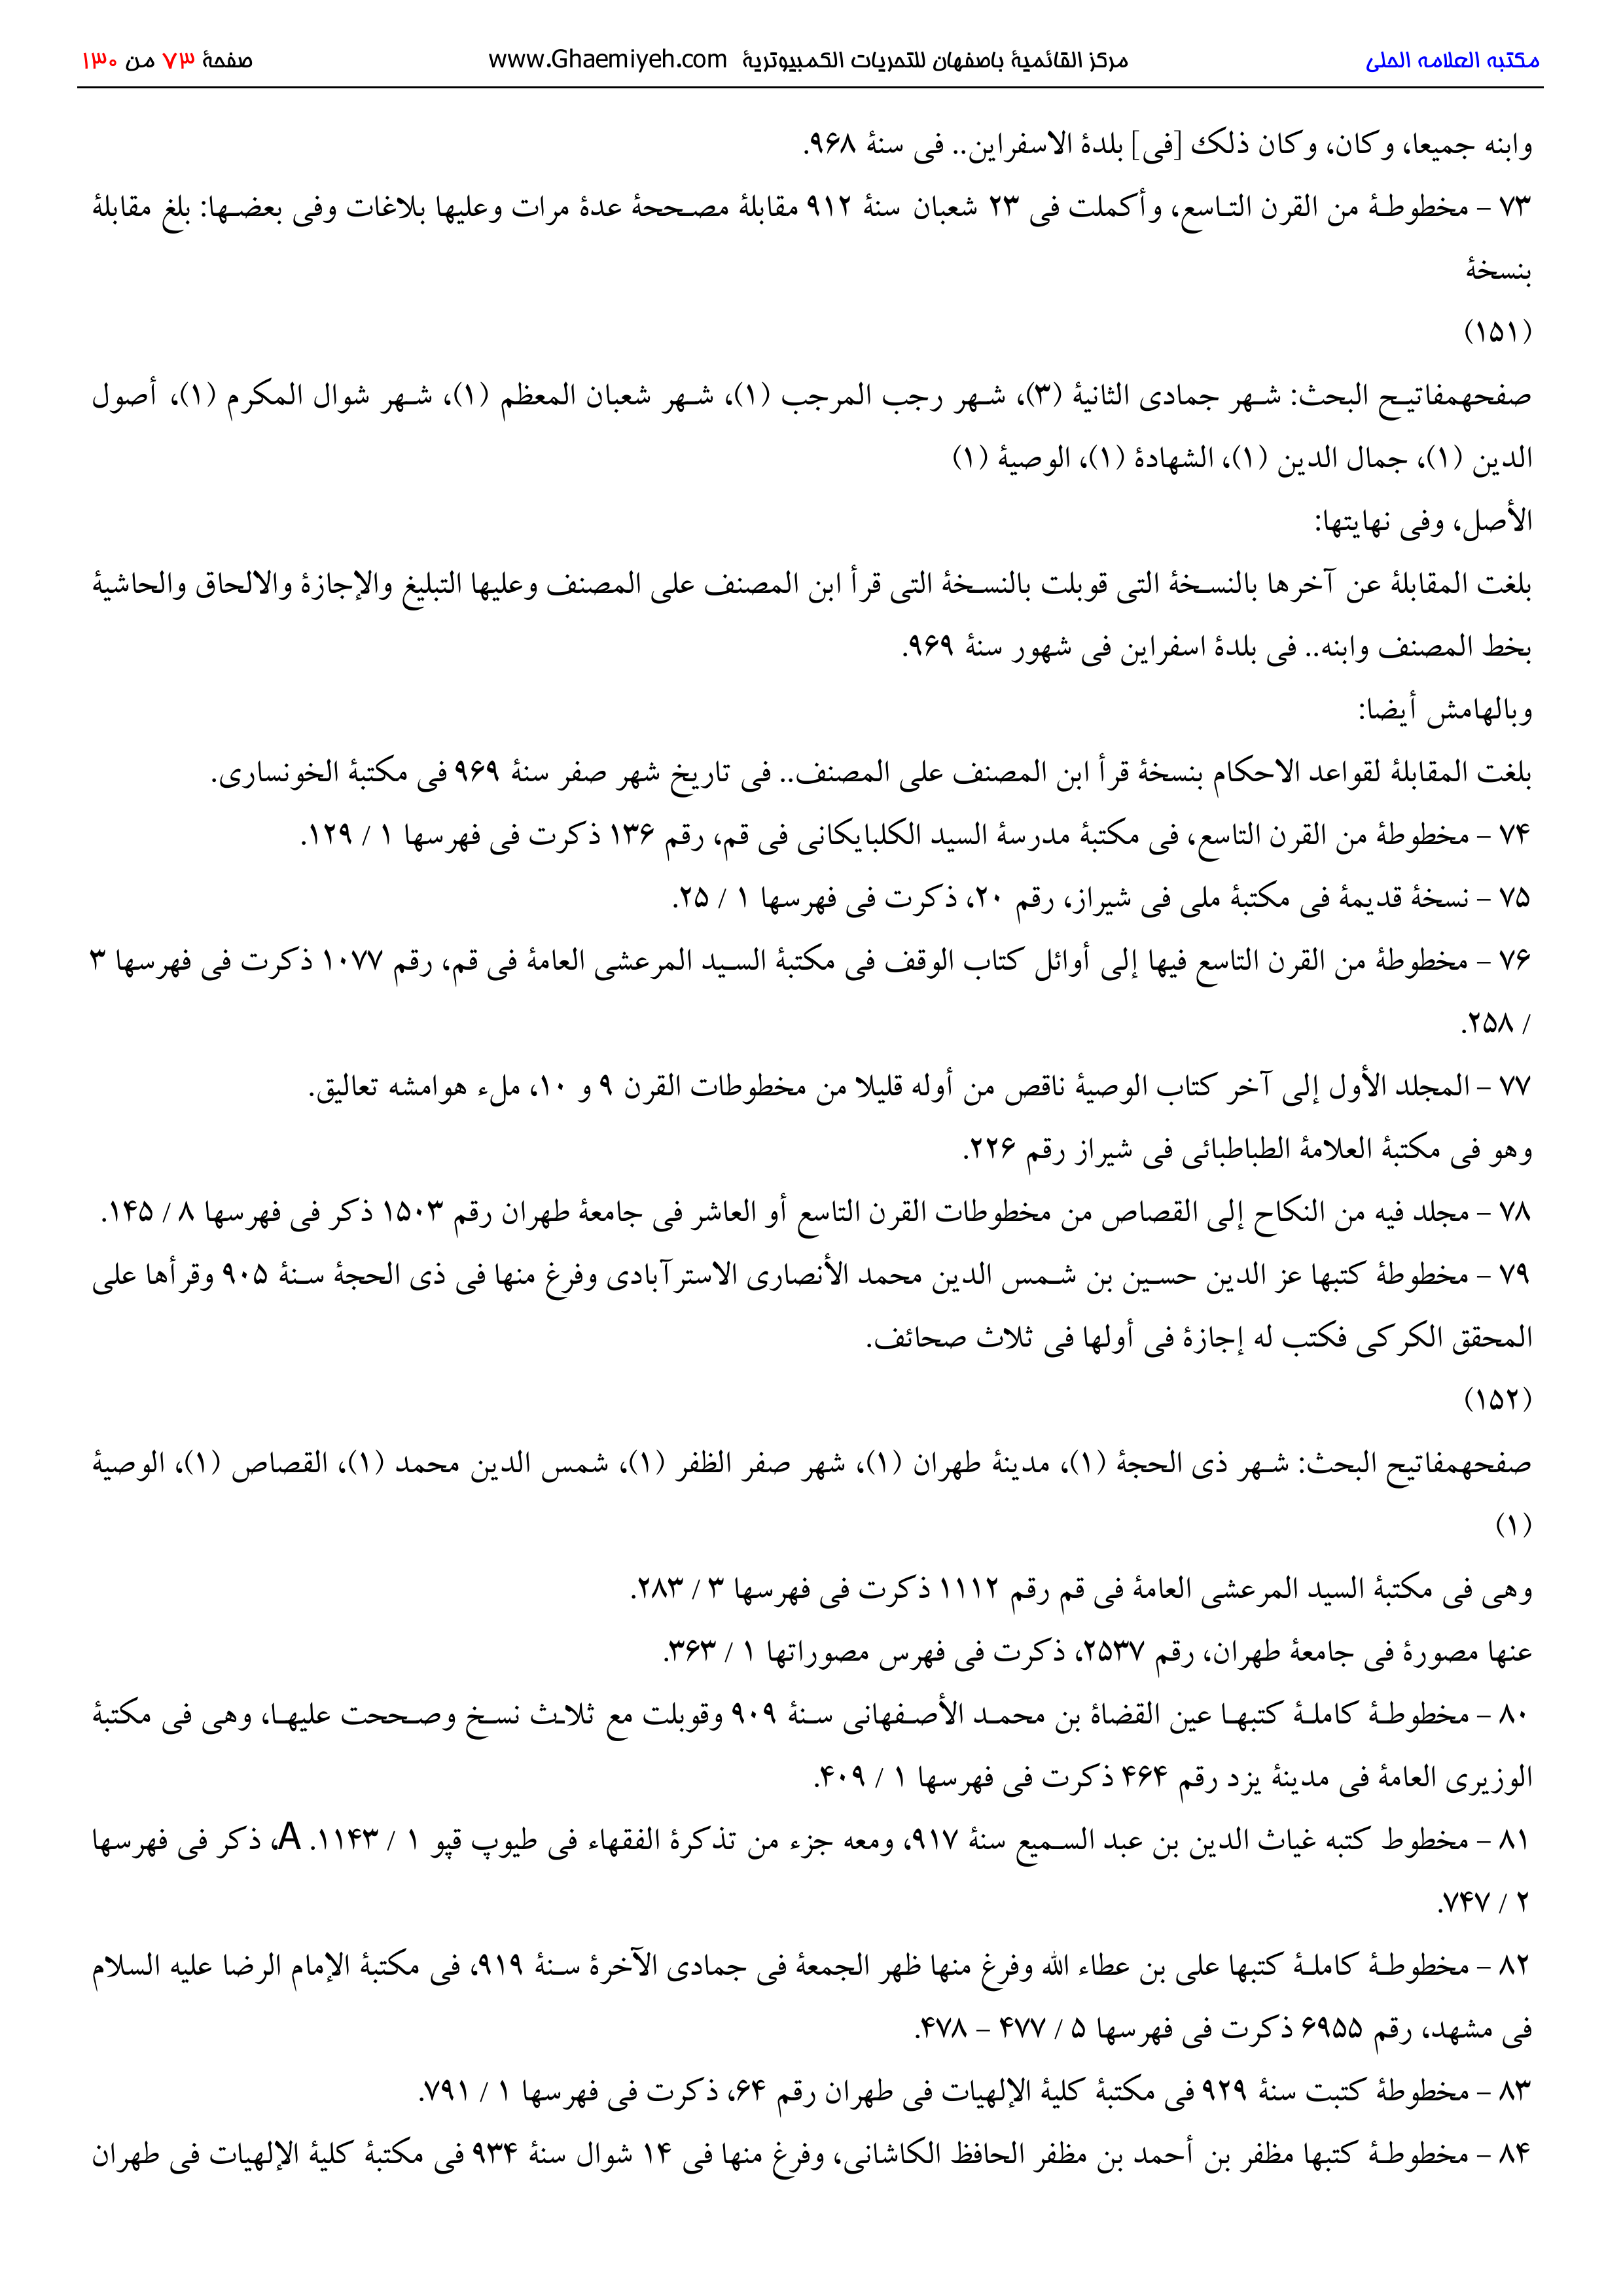 مكتبه العلامه الحلى مركز القائمیة باصفهان للتحریات الكمبیوتریة www.Ghaemiyeh.com صفحة ۷۳ من ۱۳۰
وابنه جمیعا، وكان، وكان ذلك [فی] بلدة الاسفراین.. فی سنة ۹۶۸.
۷۳ – مخطوطة من القرن التاسع، وأكملت فی ۲۳ شعبان سنة ۹۱۲ مقابلة مصححة عدة مرات وعلیها بلاغات وفی بعضها: بلغ مقابلة
بنسخة
(۱۵۱)
صفحهمفاتیح البحث: شهر جمادى الثانیة (۳)، شهر رجب المرجب (۱)، شهر شعبان المعظم (۱)، شهر شوال المكرم (۱)، أصول
الدین (۱)، جمال الدین (۱)، الشهادة (۱)، الوصیة (۱)
الأصل، وفی نهایتها:
بلغت المقابلة عن آخرها بالنسخة التی قوبلت بالنسخة التی قرأ ابن المصنف على المصنف وعلیها التبلیغ والإجازة والالحاق والحاشیة
بخط المصنف وابنه.. فی بلدة اسفراین فی شهور سنة ۹۶۹.
وبالهامش أیضا:
بلغت المقابلة لقواعد الاحكام بنسخة قرأ ابن المصنف على المصنف.. فی تاریخ شهر صفر سنة ۹۶۹ فی مكتبة الخونساری.
۷۴ – مخطوطة من القرن التاسع، فی مكتبة مدرسة السید الكلبایكانی فی قم، رقم ۱۳۶ ذكرت فی فهرسها ۱ / ۱۲۹.
۷۵ – نسخة قدیمة فی مكتبة ملی فی شیراز، رقم ۲۰، ذكرت فی فهرسها ۱ / ۲۵.
۷۶ – مخطوطة من القرن التاسع فیها إلى أوائل كتاب الوقف فی مكتبة السید المرعشی العامة فی قم، رقم ۱۰۷۷ ذكرت فی فهرسها ۳
/ ۲۵۸.
۷۷ – المجلد الأول إلى آخر كتاب الوصیة ناقص من أوله قلیلا من مخطوطات القرن ۹ و ۱۰، ملء هوامشه تعالیق.
وهو فی مكتبة العلامة الطباطبائی فی شیراز رقم ۲۲۶.
۷۸ – مجلد فیه من النكاح إلى القصاص من مخطوطات القرن التاسع أو العاشر فی جامعة طهران رقم ۱۵۰۳ ذكر فی فهرسها ۸ / ۱۴۵.
۷۹ – مخطوطة كتبها عز الدین حسین بن شمس الدین محمد الأنصاری الاسترآبادی وفرغ منها فی ذی الحجة سنة ۹۰۵ وقرأها على
المحقق الكركی فكتب له إجازة فی أولها فی ثلاث صحائف.
(۱۵۲)
صفحهمفاتیح البحث: شهر ذی الحجة (۱)، مدینة طهران (۱)، شهر صفر الظفر (۱)، شمس الدین محمد (۱)، القصاص (۱)، الوصیة
(۱)
وهی فی مكتبة السید المرعشی العامة فی قم رقم ۱۱۱۲ ذكرت فی فهرسها ۳ / ۲۸۳.
عنها مصورة فی جامعة طهران، رقم ۲۵۳۷، ذكرت فی فهرس مصوراتها ۱ / ۳۶۳.
۸۰ – مخطوطة كاملة كتبها عین القضاة بن محمد الأصفهانی سنة ۹۰۹ وقوبلت مع ثلاث نسخ وصححت علیها، وهی فی مكتبة
الوزیری العامة فی مدینة یزد رقم ۴۶۴ ذكرت فی فهرسها ۱ / ۴۰۹.
۸۱ – مخطوط كتبه غیاث الدین بن عبد السمیع سنة ۹۱۷، ومعه جزء من تذكرة الفقهاء فی طیوپ قپو ۱ / ۱۱۴۳. A، ذكر فی فهرسها
۲ / ۷۴۷.
۸۲ – مخطوطة كاملة كتبها علی بن عطاء الله وفرغ منها ظهر الجمعة فی جمادى الآخرة سنة ۹۱۹، فی مكتبة الإمام الرضا علیه السلام
فی مشهد، رقم ۶۹۵۵ ذكرت فی فهرسها ۵ / ۴۷۷ – ۴۷۸.
۸۳ – مخطوطة كتبت سنة ۹۲۹ فی مكتبة كلیة الإلهیات فی طهران رقم ۶۴، ذكرت فی فهرسها ۱ / ۷۹۱.
۸۴ – مخطوطة كتبها مظفر بن أحمد بن مظفر الحافظ الكاشانی، وفرغ منها فی ۱۴ شوال سنة ۹۳۴ فی مكتبة كلیة الإلهیات فی طهران